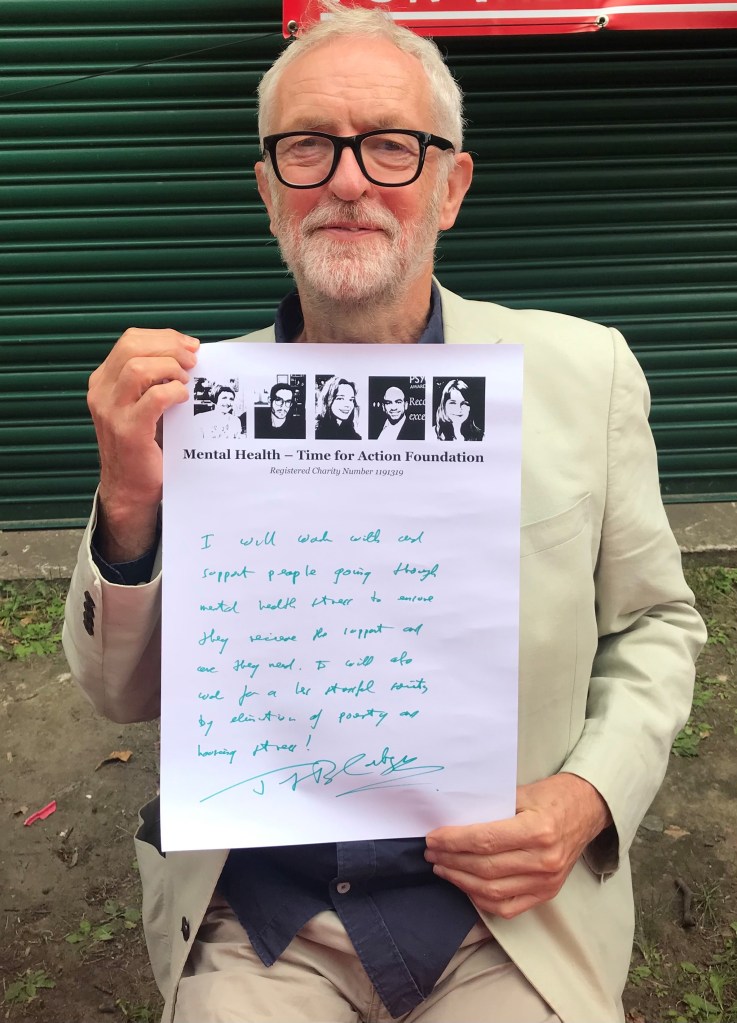 Mental Health – Time for Action Foundation
Registered Charity Number 1191319
I will work with and
support people going through
mental health stress to ensure
they recieve the support and
care they need. I will also
work for a less stressful society
by elimination of poverty and
housing stress!